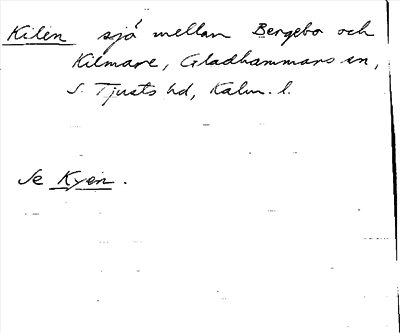 Kilen sjö mellan Bergebo och
Kilmare, Gladhammars sn,
S. Tjusts hd, Kalm. l.
Se Kyen.